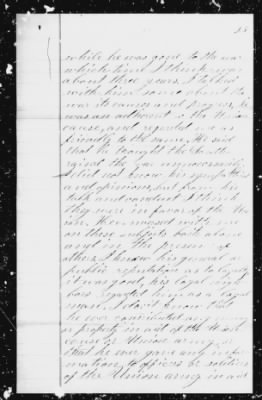 while he was gone to the war
which time I think was
about three years. I talked
with him some about the
war its causes and progress, he
was an adherent to the Union
cause, and regarded me as
friendly to the same, He said
that he thought the South
raised the war unnecessarily.
I did not know his sympathies
and opinions, but from his
talk and conduct I think
they were in favor of the Un
ion, He conversed with me
on these subjects both alone
and in the presence of
others, I know his general or
public reputation as to loyalty
it was good, his loyal neigh
bors regarded him as a loyal
man, I don't know that
he ever contributed any money
or property in aid of the United
cause or Union army, or
that he ever gave any infor
mation to officers or soldiers
of the Union army in aid